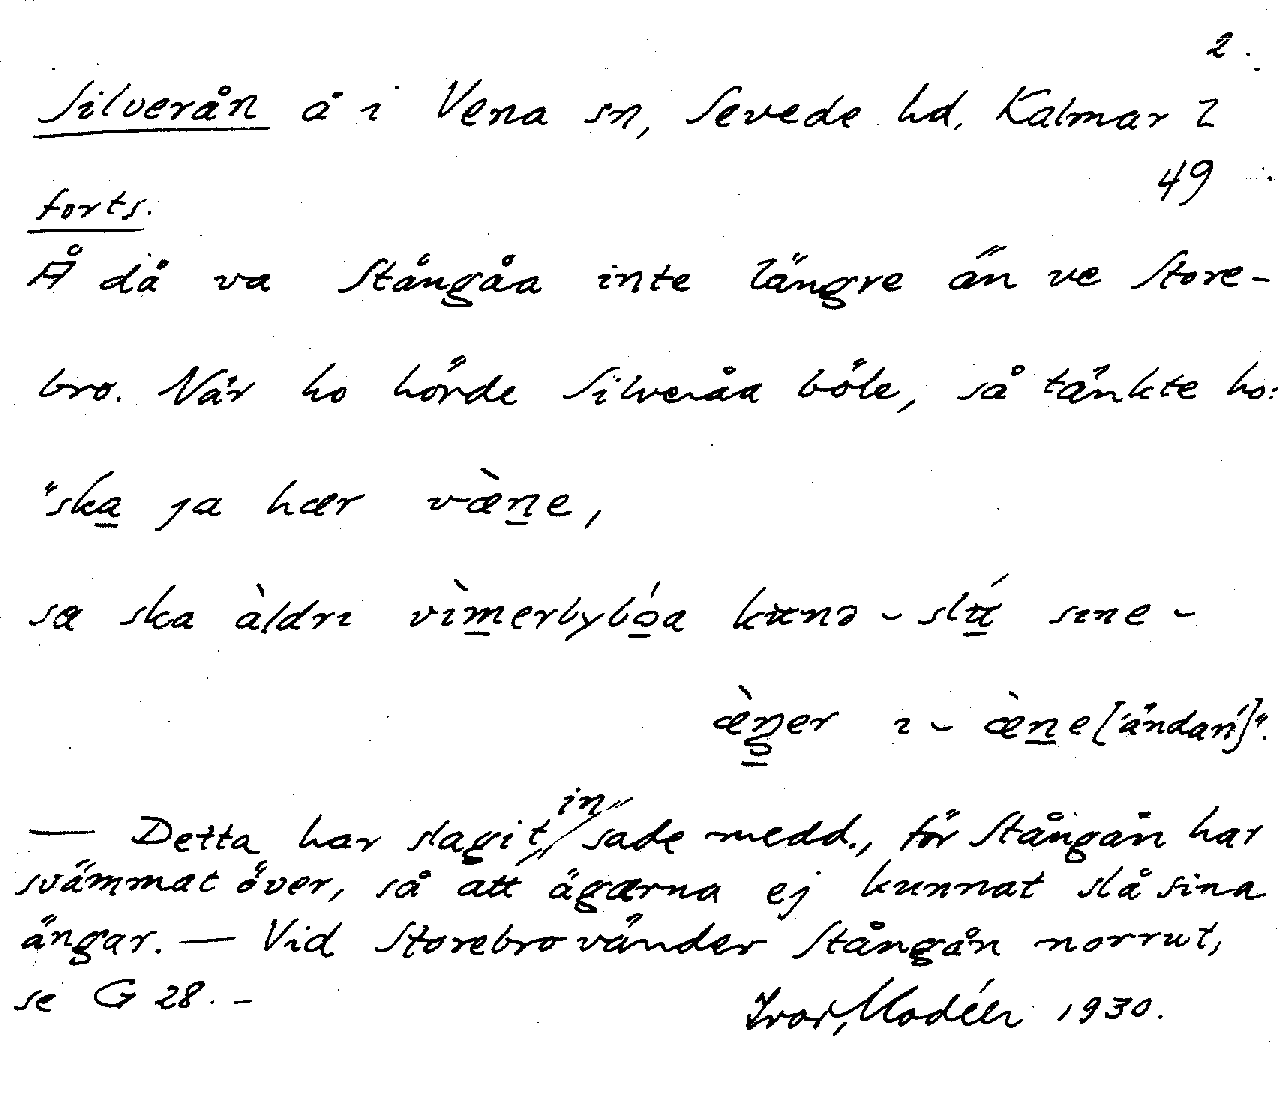 2.
Silverån å i Vena sn, Sevede hd. Kalmar l
49
forts.
Å då va Stångåa inte längre än ve Store-
bro. När ho hörde Silveråa böle, så tänkte ho:
"ska ja hær væ̀ne,
sa ska àldrı vìmerbybóa kunə ‿ slʉ́ sıne ‿
æ̀ŋer ı ‿ æ̀ne ["ändan"]".
— Detta har slagit in, sade medd., för Stångån har
svämmat över, så att ägarna ej kunnat slå sina
ängar. — Vid Storebro vänder Stångån norrut,
se G 28. –
Ivar Modéer 1930.